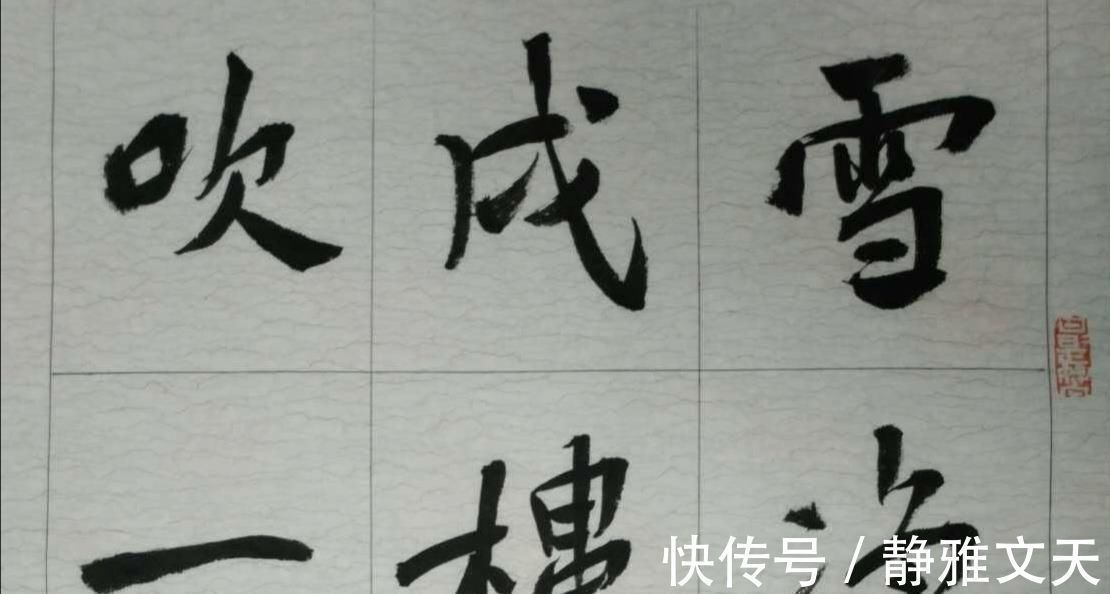 雪
戍樓
吹一
快传号 / 静雅文天